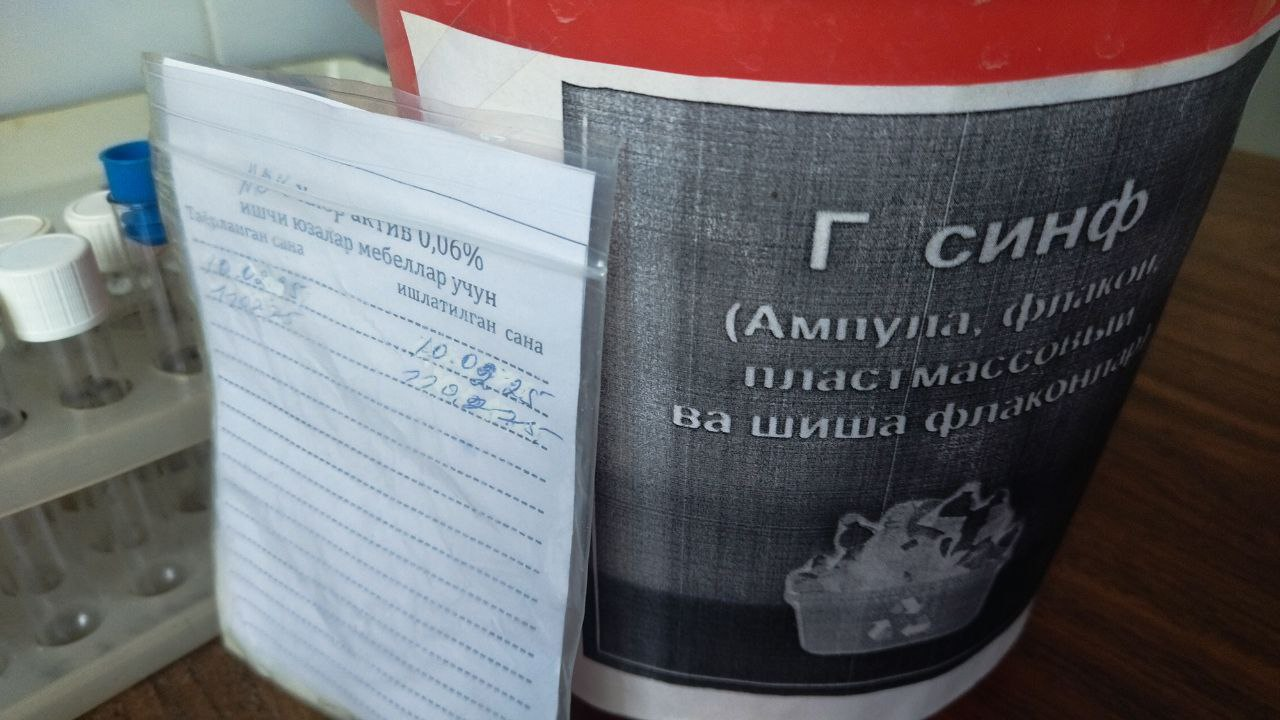 актив 0,06%
ишчи юзалар мебеллар учун
Таёрланган сана
ишлатилган сана
10.02.25
10.02.25
110225
110225
Г синф
(Ампула, флакон,
пластмассовый
ва шиша флаконлар)